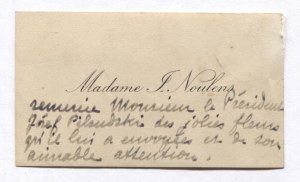 Madame J. Noulens
remercie Monsieur le Président
Józef Pilsudski des jolies fleurs
qu'il lui a envoyées et de son
aimable attention.